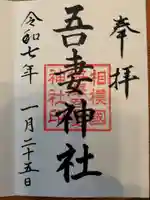 奉拝
相模國
吾妻神社
神社印
令和七年 一月二十五日